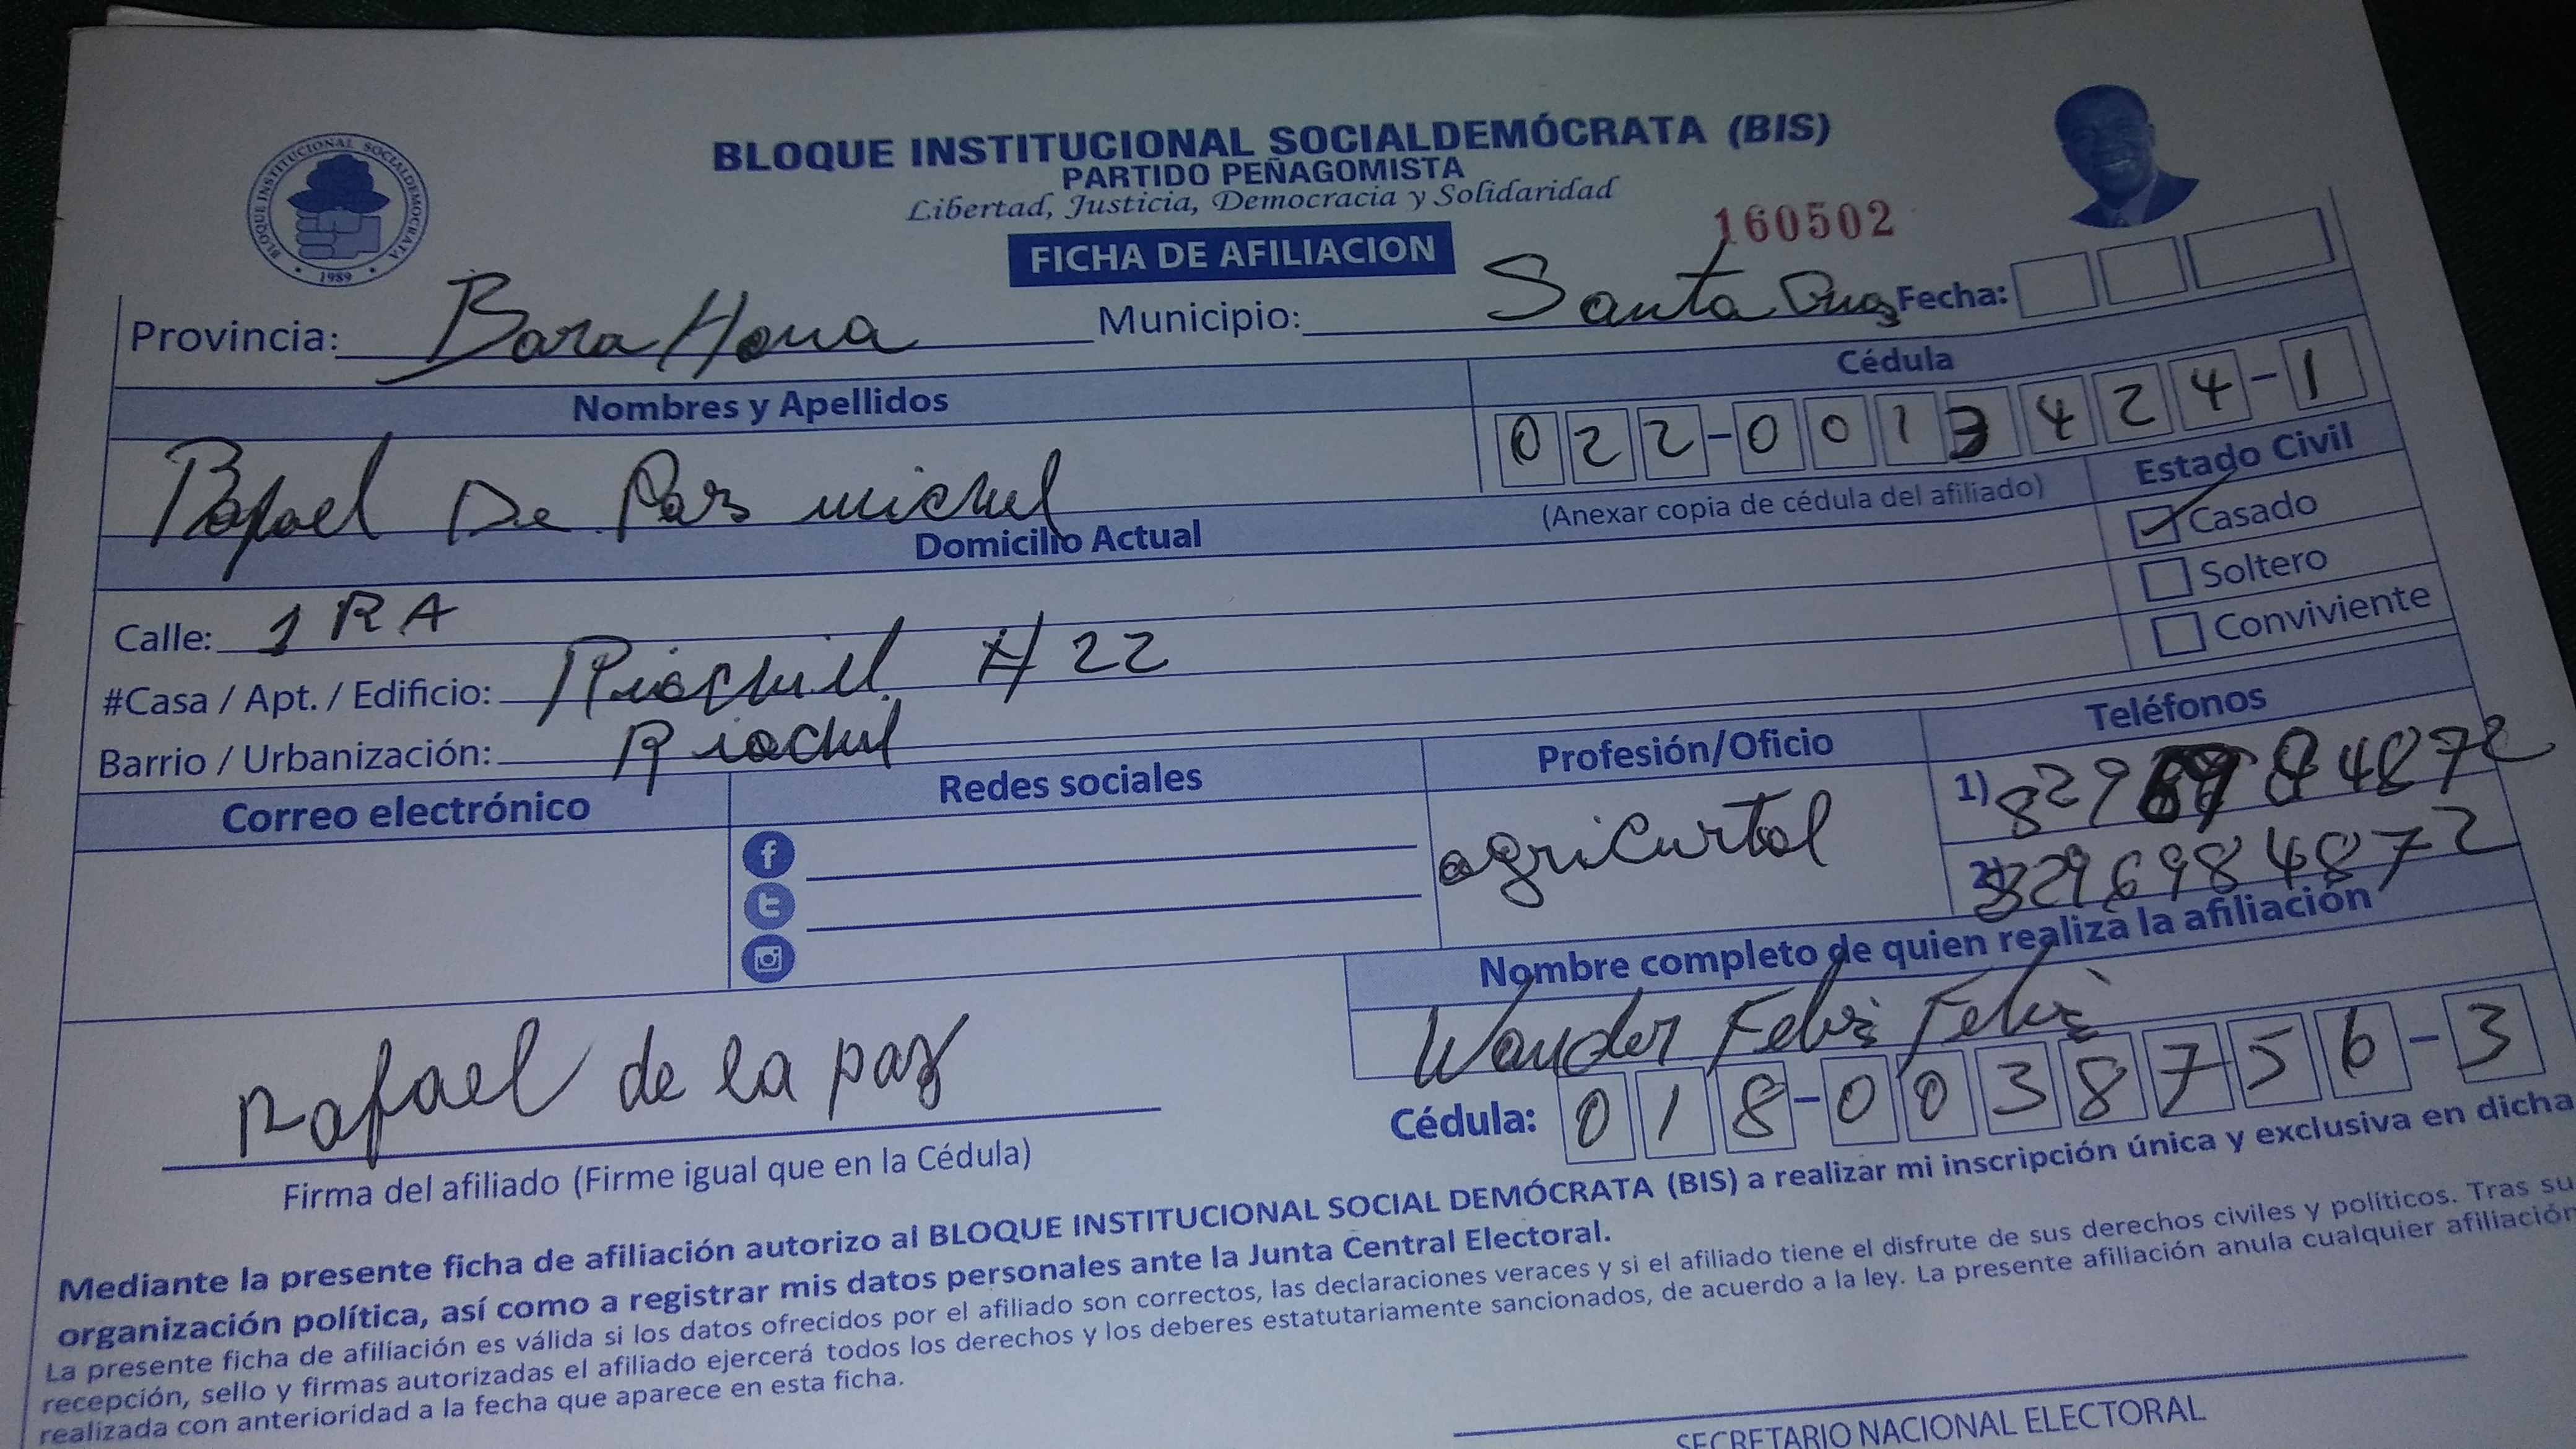 BLOQUE INSTITUCIONAL SOCIALDEMÓCRATA
1989
BLOQUE INSTITUCIONAL SOCIALDEMÓCRATA (BIS)
PARTIDO PEÑAGOMISTA
Libertad, Justicia, Democracia y Solidaridad
160502
FICHA DE AFILIACION
Provincia: BaraHona Municipio: Santa Cruz Fecha:
Nombres y Apellidos
Cédula
Rafael De Paz michel
022-0013424-1
(Anexar copia de cédula del afiliado)
Estado Civil
Casado
Soltero
Conviviente
Domicilio Actual
Calle: 1RA
#Casa / Apt. / Edificio: #22
Barrio / Urbanización:
Correo electrónico
Redes sociales
Profesión/Oficio
Teléfonos
agriCurtol
1)
2) 8296984872
Nombre completo de quien realiza la afiliación
Wander Feliz Feliz
Cédula: 018-0038756-3
Rafael de la paz
Firma del afiliado (Firme igual que en la Cédula)
Mediante la presente ficha de afiliación autorizo al BLOQUE INSTITUCIONAL SOCIAL DEMÓCRATA (BIS) a realizar mi inscripción única y exclusiva en dicha
organización política, así como a registrar mis datos personales ante la Junta Central Electoral.
La presente ficha de afiliación es válida si los datos ofrecidos por el afiliado son correctos, las declaraciones veraces y si el afiliado tiene el disfrute de sus derechos civiles y políticos. Tras su
recepción, sello y firmas autorizadas el afiliado ejercerá todos los derechos y los deberes estatutariamente sancionados, de acuerdo a la ley. La presente afiliación anula cualquier afiliación
realizada con anterioridad a la fecha que aparece en esta ficha.
SECRETARIO NACIONAL ELECTORAL